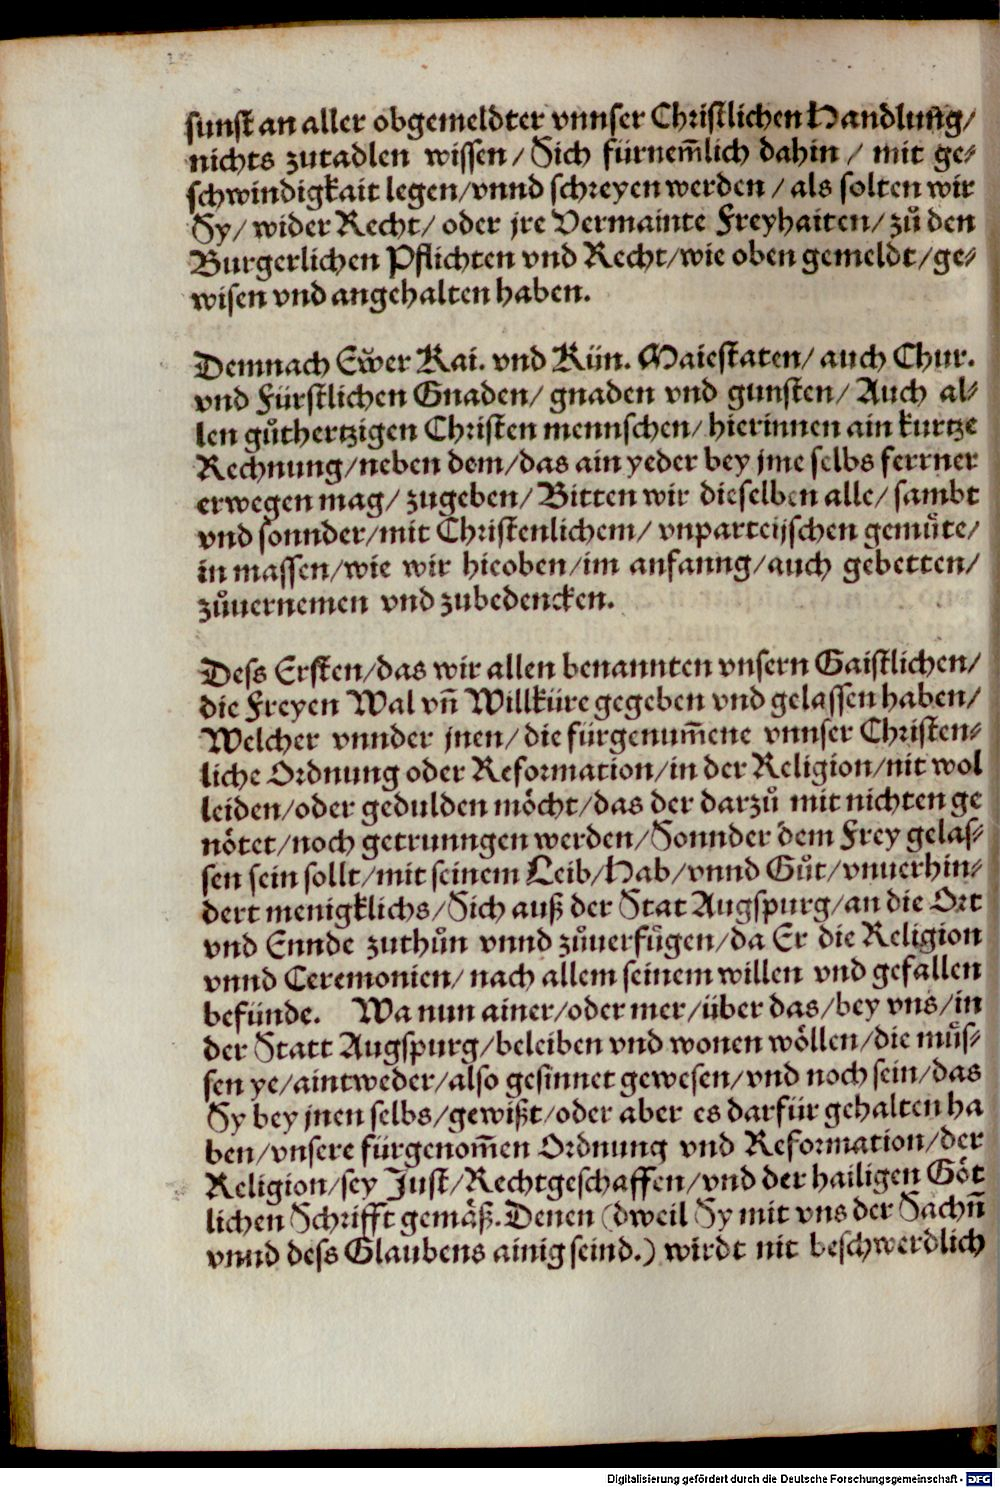 sunst an aller obgemeldter vnnser Christlichen Handlung/
nichts zutadlen wissen/ Sich fürnem̃lich dahin/ mit ge⸗
schwindigkait legen/vnnd schreyen werden/ als solten wir
Sy/ wider Recht/ oder jre Vermainte Freyhaiten/ zů den
Burgerlichen Pflichten vnd Recht/wie oben gemeldt/ge⸗
wisen vnd angehalten haben.
Demnach Ew̃er Kai. vnd Kün. Maiestaten/ auch Chur.
vnd Fürstlichen Gnaden/ gnaden vnd gunsten/ Auch al⸗
len gůthertzigen Christen mennschen/ hierinnen ain kurtze
Rechnung/neben dem/das ain yeder bey jme selbs ferrner
erwegen mag/ zugeben/ Bitten wir dieselben alle/ sambt
vnd sonnder/mit Christenlichem/ vnparteijschen gemůte/
in massen/wie wir hieoben/im anfanng/auch gebetten/
zůuernemen vnd zubedencken.
Dess Ersten/das wir allen benannten vnsern Gaistlichen/
die Freyen Wal vñ Willküre gegeben vnd gelassen haben/
Welcher vnnder jnen/die fürgenum̃ene vnnser Christen⸗
liche Ordnung oder Reformation/in der Religion/nit wol
leiden/oder gedulden möcht/das der darzů mit nichten ge
nötet/noch getrunngen werden/Sonnder dem Frey gelas⸗
sen sein sollt/mit seinem Leib/Hab/vnnd Gůt/vnuerhin⸗
dert menigklichs/Sich auß der Stat Augspurg/an die Ort
vnd Ennde zuthůn vnnd zůuerfügen/da Er die Religion
vnnd Ceremonien/ nach allem seinem willen vnd gefallen
befünde. Wa nun ainer/oder mer/über das/bey vns/in
der Statt Augspurg/beleiben vnd wonen wöllen/die můs⸗
sen ye/aintweder/also gesinnet gewesen/vnd noch sein/das
Sy bey jnen selbs/gewißt/oder aber es darfür gehalten ha
ben/vnsere fürgenom̃en Ordnung vnd Reformation/der
Religion/sey Just/Rechtgeschaffen/vnd der hailigen Göt
lichen Schrifft gemäß. Denen (dweil Sy mit vns der Sachñ
vnnd dess Glaubens ainig seind.) wirdt nit beschwerdlich
Digitalisierung gefördert durch die Deutsche Forschungsgemeinschaft - DFG